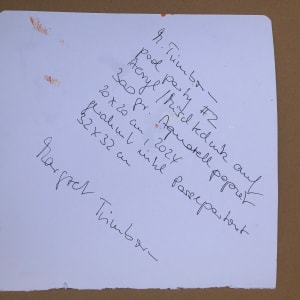 M. Trimbor
pool party #2
Acryl/Mischtechnik auf
300 gr. Aquarellpapier
20x20 cm, 2024
gerahmt inkl. Passepartout
32x32 cm
Margret Trimbor